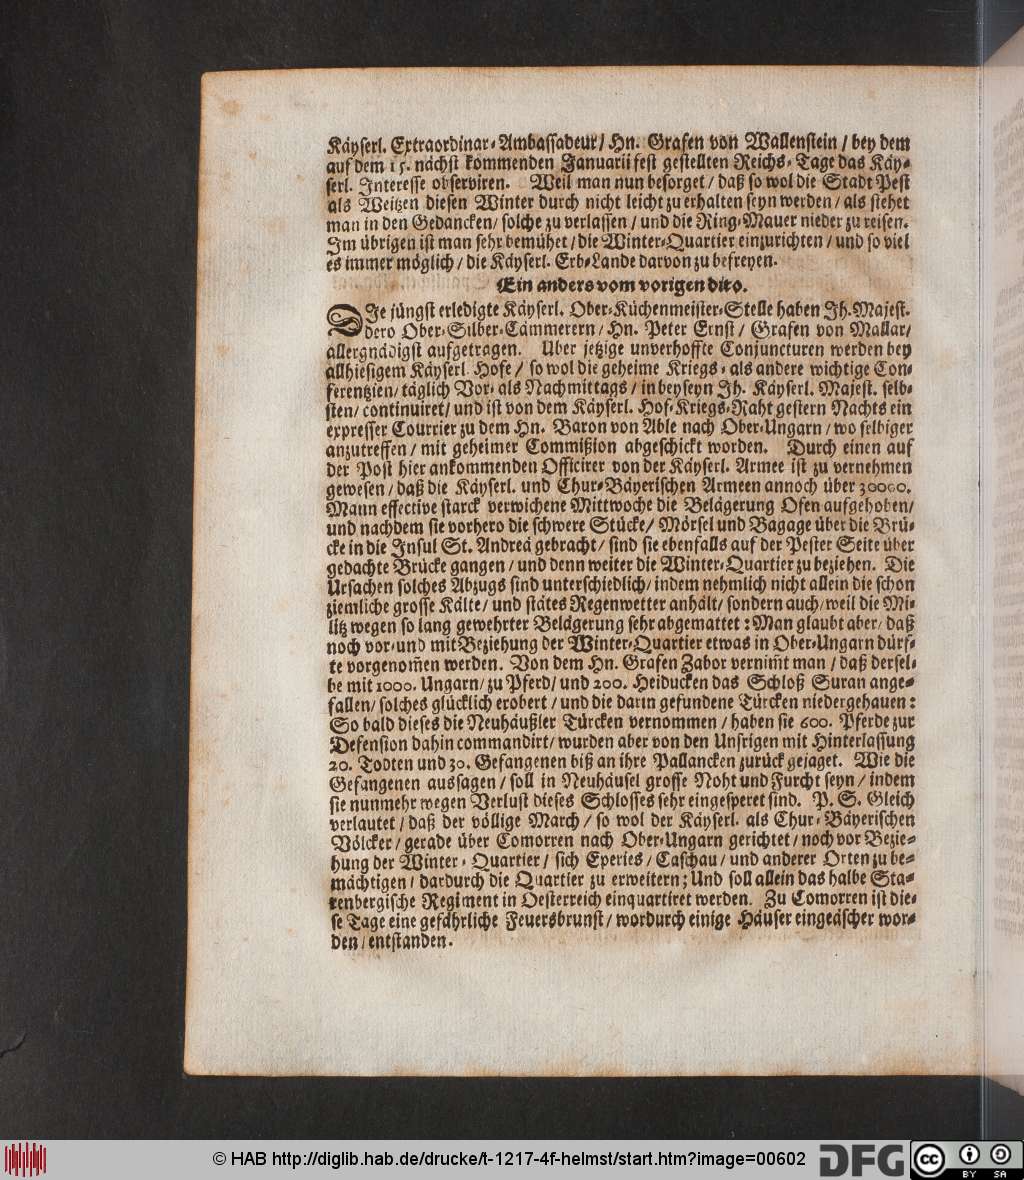 Käyserl. Extraordinar-Ambassadeur/ Hn. Grafen von Wallenstein / bey dem
auf dem 15. nächst kommenden Januarii fest gestellten Reichs-Tage das Käy-
serl. Interesse observiren. Weil man nun besorget / daß so wol die Stadt Pest
als Weitzen diesen Winter durch nicht leicht zu erhalten seyn werden / als stehet
man in den Gedancken/ solche zu verlassen / und die Ring-Mauer nieder zu reisen.
Im übrigen ist man sehr bemühet / die Winter-Quartier einzurichten / und so viel
es immer möglich / die Käyserl. Erb-Lande darvon zu befreyen.
Ein anders vom vorigen dito.
DIe jüngst erledigte Käyserl. Ober-Küchenmeister-Stelle haben Jh. Majest.
dero Ober-Silber-Cämmerern / Hn. Peter Ernst / Grafen von Mallar/
allergnädigst aufgetragen. Uber jetzige unverhoffte Conjuncturen werden bey
allhiesigem Käyserl. Hofe / so wol die geheime Kriegs- als andere wichtige Con-
ferentzien/ täglich Vor- als Nachmittags / in beyseyn Jh. Käyserl. Majest. selb-
sten/ continuiret/ und ist von dem Käyserl. Hof-Kriegs-Raht gestern Nachts ein
expresser Courrier zu dem Hn. Baron von Able nach Ober-Ungarn / wo selbiger
anzutreffen / mit geheimer Commißion abgeschickt worden. Durch einen auf
der Post hier ankommenden Officirer von der Käyserl. Armee ist zu vernehmen
gewesen / daß die Käyserl. und Chur-Bäyerischen Armeen annoch über 30000.
Mann effective starck verwichene Mittwoche die Belägerung Ofen aufgehoben/
und nachdem sie vorhero die schwere Stücke/ Mörsel und Bagage über die Brü-
cke in die Insul St. Andreä gebracht/ sind sie ebenfalls auf der Pester Seite über
gedachte Brücke gangen / und denn weiter die Winter-Quartier zu beziehen. Die
Ursachen solches Abzugs sind unterschiedlich/ indem nehmlich nicht allein die schon
ziemliche grosse Kälte/ und stätes Regenwetter anhält/ sondern auch/ weil die Mi-
litz wegen so lang gewehrter Belägerung sehr abgemattet : Man glaubt aber/ daß
noch vor- und mit Beziehung der Winter-Quartier etwas in Ober-Ungarn dürf-
te vorgenom̃en werden. Von dem Hn. Grafen Zabor vernim̃t man / daß dersel-
be mit 1000. Ungarn/ zu Pferd/ und 200. Heiducken das Schloß Suran ange-
fallen/ solches glücklich erobert / und die darin gefundene Türcken niedergehauen :
So bald dieses die Neuhäußler Türcken vernommen / haben sie 600. Pferde zur
Defension dahin commandirt/ wurden aber von den Unsrigen mit Hinterlassung
20. Todten und 30. Gefangenen biß an ihre Pallancken zurück gejaget. Wie die
Gefangenen aussagen/ soll in Neuhäusel grosse Noht und Furcht seyn / indem
sie nunmehr wegen Verlust dieses Schlosses sehr eingesperet sind. P. S. Gleich
verlautet / daß der völlige March / so wol der Käyserl. als Chur-Bäyerischen
Völcker / gerade über Comorren nach Ober-Ungarn gerichtet / noch vor Bezie-
hung der Winter-Quartier / sich Eperies / Caschau / und anderer Orten zu be-
mächtigen / dardurch die Quartier zu erweitern; Und soll allein das halbe Sta-
renbergische Regiment in Oesterreich einquartiret werden. Zu Comorren ist die-
se Tage eine gefährliche Feuersbrunst/ wordurch einige Häuser eingeäscher wor-
den / entstanden.
© HAB http://diglib.hab.de/drucke/t-1217-4f-helmst/start.htm?image=00602
DFG
cc BY SA